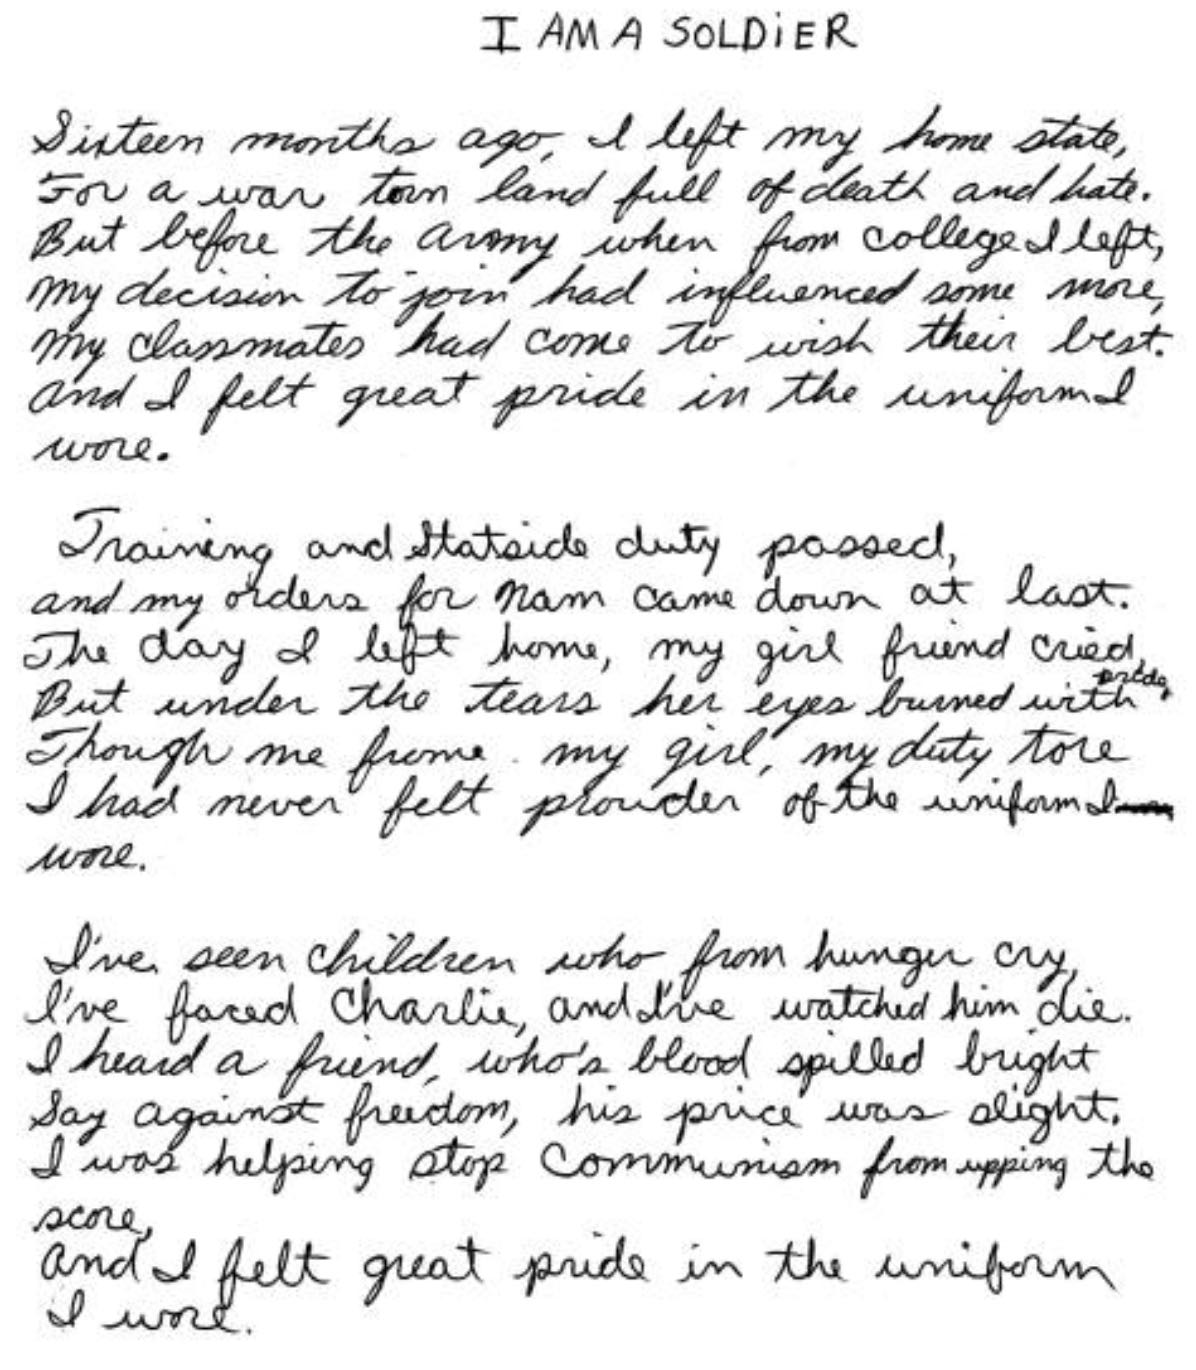 I AM A SOLDiER
Sixteen months ago, I left my home state,
For a war torn land full of death and hate.
But before the army when from college I left,
My decision to join had influenced some more,
My classmates had come to wish their best.
And I felt great pride in the uniform I
wore.
Training and Statside duty passed,
and my orders for Nam came down at last.
The day I left home, my girl friend cried,
But under the tears her eyes burned with pride,
Though me frome my girl, my duty tore
I had never felt prouder of the uniform I
wore.
I've seen children who from hunger cry,
I've faced Charlie, and I've watched him die.
I heard a friend, who's blood spilled bright
Say against freedom, his price was slight.
I was helping stop Communism from upping the
score,
And I felt great pride in the uniform
I wore.